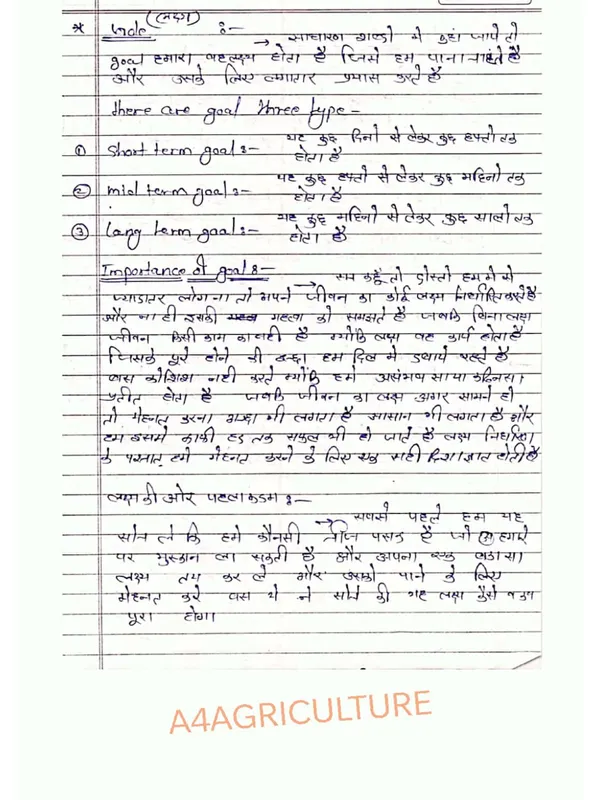 (लक्ष्य)
* :- → साधारण शब्दों में कहां जाये तो
goal हमारा वह लक्ष्य होता है जिसे हम पाना चाहते है
और उसके लिए लगातार प्रयास करते है
there are goal three type -
① Short term goal :- यह कुछ दिनो से लेकर कुछ हफ्तो तक
होता है
② mid term goal :- यह कुछ हफ्तो से लेकर कुछ महिनो तक
होता है
③ Long term goal :- यह कुछ महिनो से लेकर कुछ सालो तक
होता है
Importance of goal :- → सच कहूँ तो दोस्तो हम मे से
ज्यादातर लोग ना तो अपने जीवन का कोई लक्ष्य निर्धारित करते है
और ना ही इसकी महत्व को समझते है जबकि बिना लक्ष्य
जीवन किसी काम का नही है क्योकि लक्ष्य वह कार्य होता है
जिसके पूरे होने की इच्छा हम दिल मे दबाये रहते है
बस कोशिश नही करते क्योंकि हमे असंभव सा या कठिन सा
प्रतीत होता है जबकि जीवन का लक्ष्य अगर सामने हो
तो मेहनत करना अच्छा भी लगता है आसान भी लगता है और
हम इसमे काफी हद तक सफल भी हो जाते है लक्ष्य निर्धारित
के पश्चात् हमे मेहनत करने के लिए एक सही दिशा ज्ञात होती है
लक्ष्य की ओर पहला कदम :-
→ सबसे पहले हम यह
सोच ले कि हमे कौनसी चीज पसंद है जो हमारे
पर मुस्कान ला सकती है और अपना एक बड़ा सा
लक्ष्य तय कर ले और उसको पाने के लिए
मेहनत करे बस ये ने सोचे की यह लक्ष्य कैसे
पूरा होगा।
A4AGRICULTURE